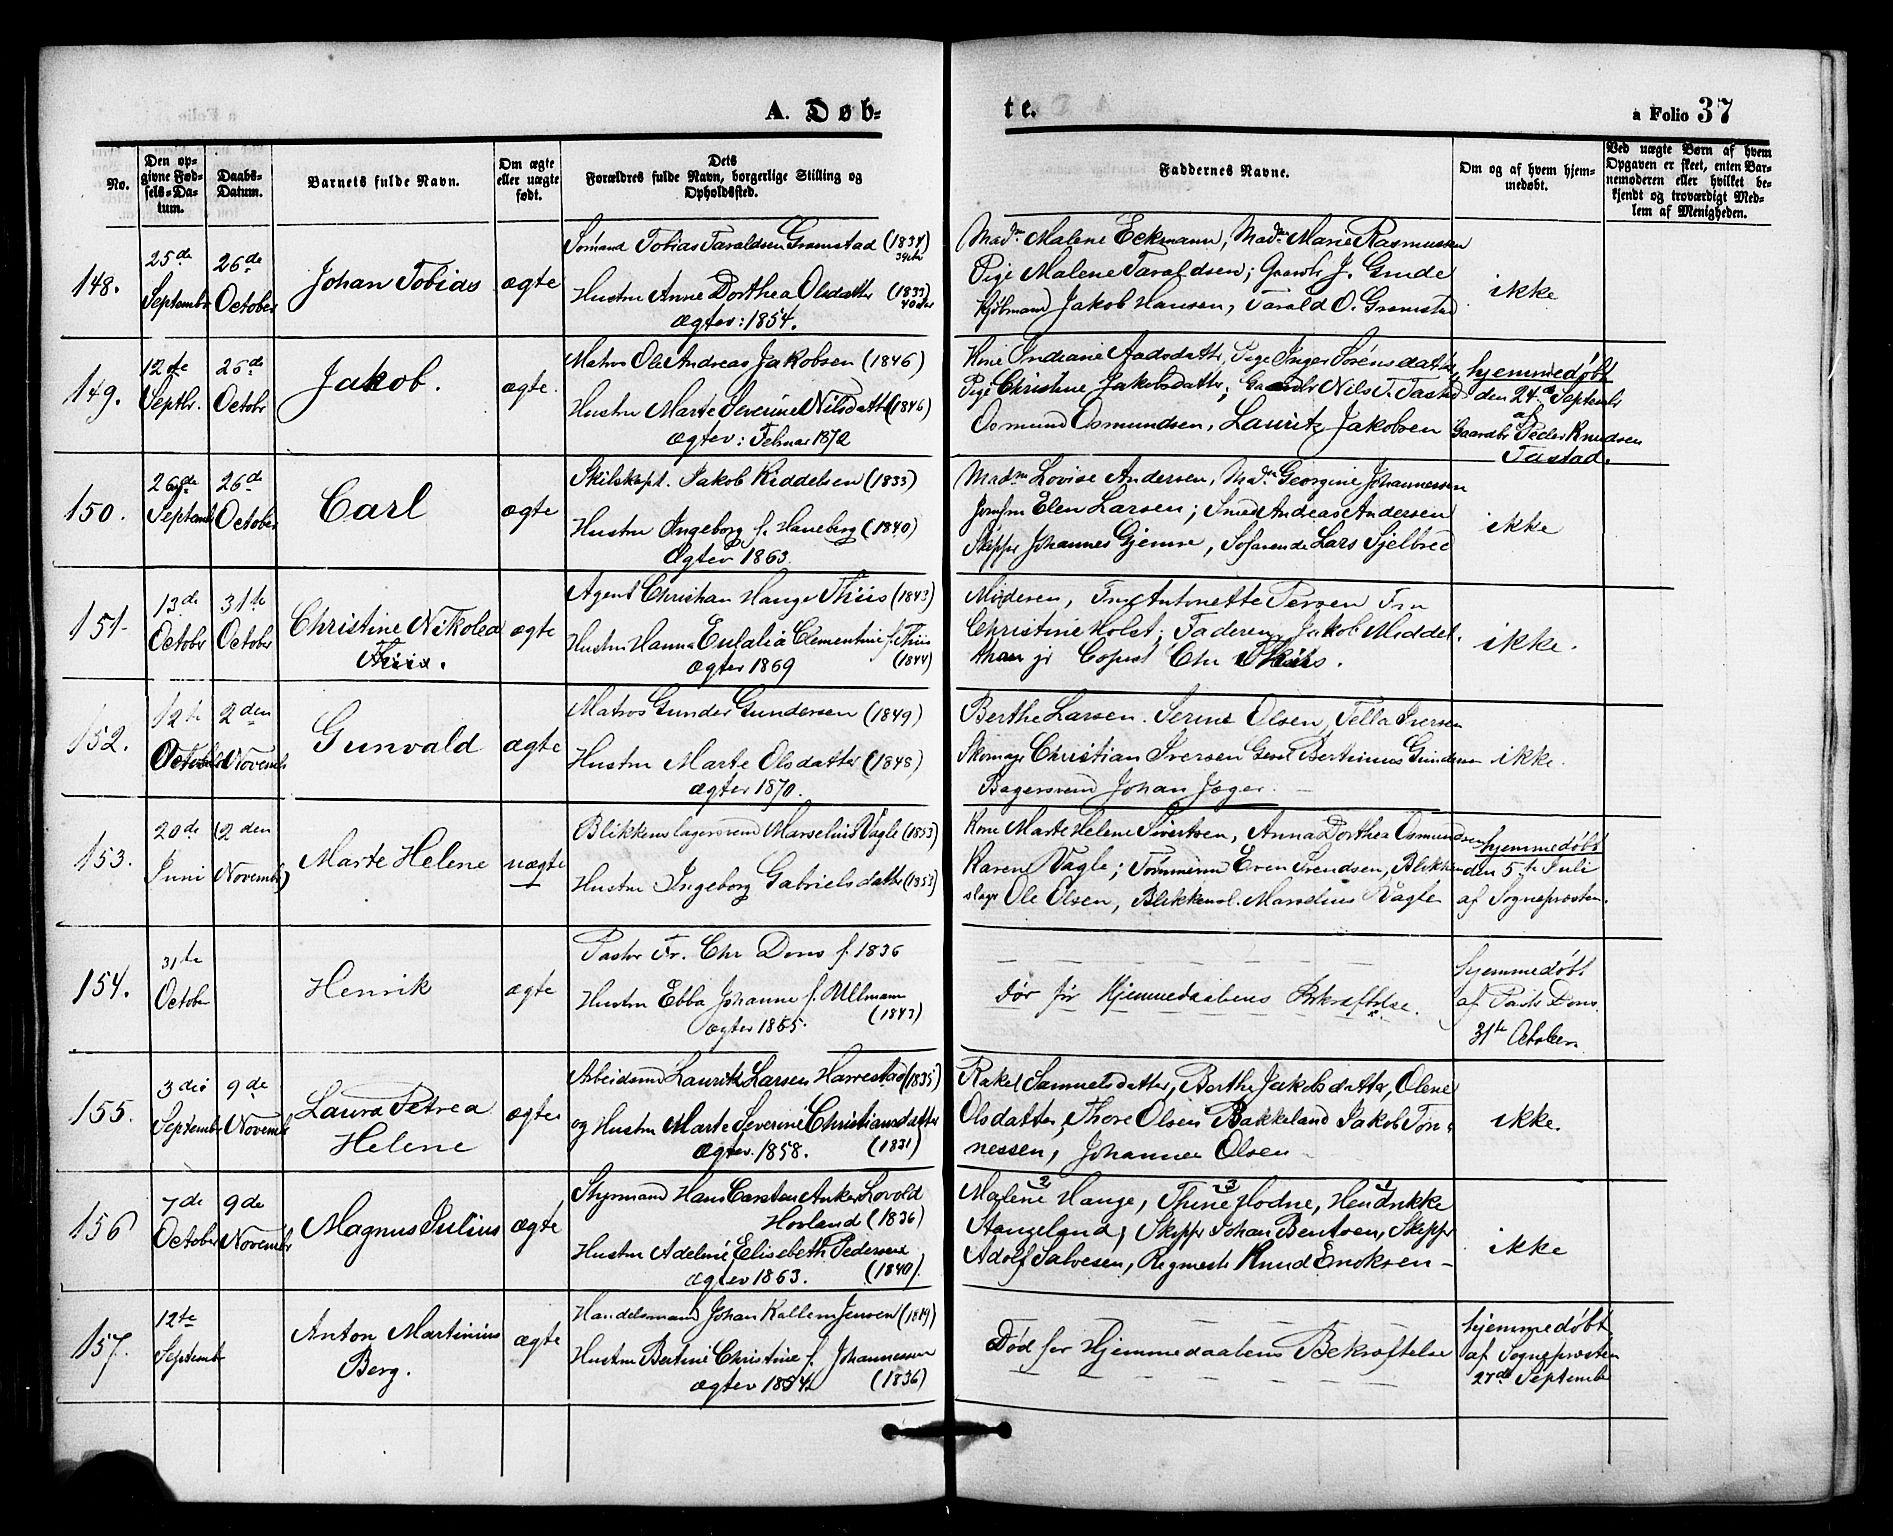 A. Døb-
te.
a Folio 37
No.
Den op-
givne Fød-
sels-Da-
tum.
Daabs-
Datum.
Barnets fulde Navn.
Om ægte
eller uægte
født.
Dets
Forældres fulde Navn, borgerlige Stilling og
Opholdssted.
Faddernes Navne.
Om og af hvem hjem-
medøbt.
Ved uægte Børn af hvem
Opgaven er skeet, enten Bar-
nemoderen eller hvilket be-
kjendt og troværdigt Med-
lem af Menigheden.
148.
25de
Septembr
26de
October
Johan Tobias
ægte
Sømand Tobias Taraldsen Gramstad (1834)
Hustru Anne Dorthea Olsdatter (1833)
Ægtev: 1854.
Madm Malene Eckmann, Madm Marie Rasmussen
Pige Malene Taraldsen; Gaardb J. Grude
Kjøbmand Jakob Hansen, Tarald O. Gramstad
ikke
149.
12te
Septbr.
26de
Octobr
Jakob.
ægte.
Matros Ole Andreas Jakobsen (1846)
Hustru Marte Severine Nilsdatter (1846)
Ægtev: Februar 1872
Kone Indianie Aadsdatter, Pige Inger Sørensdatter
Pige Christine Jakobsdatter; Gaardbr Nils T. Tastad
Osmund Osmundsen, Lauritz Jakobsen
hjemmedøbt
den 24de Septembr
af
Gaardbr Peder Knudsen
Tastad.
150.
26de
Septembr
26de
October
Carl
ægte
Skibskapt. Jakob Kiddelsen (1833)
Hustru Ingeborg f. Haneberg (1840)
Ægtev 1863.
Madm Lovise Andersen, Madm Georgine Johannessen
Jomfru Elen Larsen; Smed Andreas Andersen
Skipper Johannes Gjemre, Søfarende Lars Sjelbred
ikke
151.
13de
Octobr
31te
October
Christine Nikolea
Thiis.
ægte
Agent Christian Hauge Thiis (1843)
Hustru Hanna Eulalia Clementine f. Thiis
Ægtev 1869
(1844)
Moderen, Fru Antonette Fru
Christine Holst; Faderen, Jakob Middel-
thon jr Copist Chr Thiis.
ikke.
152.
12te
October
2den
Novembr
Gunvald
ægte
Matros Gunder Gundersen (1849)
Hustru Marte Olsdatter (1848)
Ægtev 1870.
Berthe Larsen. Serine Olsen, Tella Iversen
Skomager Christian Iversen Bertinius Gundersen
Bagersvend Johan Jæger.
ikke.
153.
20de
Juni
2den
Novembr
Marte Helene
uægte
Blikkenslagersvend Marselius Vagle (1853)
Hustru Ingeborg Gabrielsdatter (1853)
Kone Marte Helene Sivertsen, Anna Dorthea Osmundsen
Karene Vagle; Tømmerm Even Svendsen, Blikken-
slager Ole Olsen, Blikkensl. Marselius Vagle
hjemmedøbt
den 5te Juli
af Sogneprosten.
154.
31te
October
Henrik
ægte
Pastor Fr. Chr Dons f. 1836
Hustru Ebba Johanne f. Ullmann
Ægtev 1865.
(1843)
Død før Hjemmedaabens Bekræftelse.
hjemmedøbt
af Pastor Dons
31te October
155.
3die
Septembr
9de
Novembr
Laura Petrea
Helene
ægte
Arbeidsmd Lauritz Larsen Harrestad (1835)
og Hustru Marte Severine Christiansdatter
Ægtev. 1858.
(1831)
Rakel Samuelsdatter, Berthe Jakobsdatter, Olene
Olsdatter, Thore Olsen Bakkeland Jakob Tøn-
nessen, Johannes Olsen
ikke.
156
7de
October
9de
Novembr
Magnus Julius
ægte
Styrmand Hans Carsten Anker Lovold
Hovland (1836)
Hustru Adeline Elisebeth Pedersen
Ægtev 1863.
(1840).
Malene Hauge, Thrine Hodne, Hendrikke
Stangeland, Skipper Johan Bentsen, Skipper
Adolf Salvesen, Regnmest Knud Enoksen
ikke
157.
12te
Septembr
Anton Martinius
Berg.
ægte
Handelsmand Johan Kallem Jensen (1819)
Hustru Bertine Christine f. Johannessen
Ægtev 1854
(1836)
Død før Hjemmedaabens Bekræftelse
hjemmedøbt
af Sogneprosten
27de Septembr